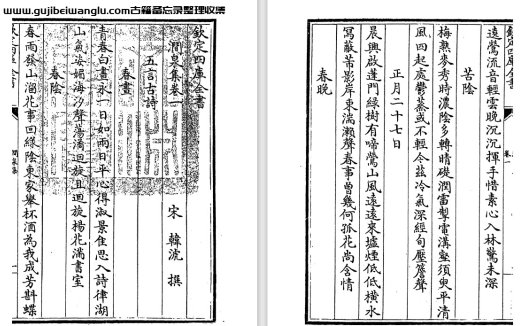 www.gujibeiwanglu.com古籍备忘录整理收集
欽定四庫全書
澗泉集卷一
宋 韓淲 撰
五言古詩
春晝
青春白晝永一日如兩日平心得淑景佳思入詩律湖
山氣姿媚海汐聲蕩潏迴旋且迴旋楊花滿書室
春陰
春雨發山溜花事回綠陰東家舉杯酒為我成芳斟蝶
遠鶯流音輕雲晚沉沉揮手惜素心入林驚未深
苦陰
梅熟麥秀時濃陰多轉晴礎潤雷掣電溝壑須臾平清
風四起處鬱蒸或不輕今茲冷氣深經旬壓簷聲
正月二十七日
晨興啟蓬門綠樹有啼鶯山風遠遠來墟煙低低橫水
冪蔽苔影岸東湍瀨聲春事曾幾何孤花尚含情
春晚